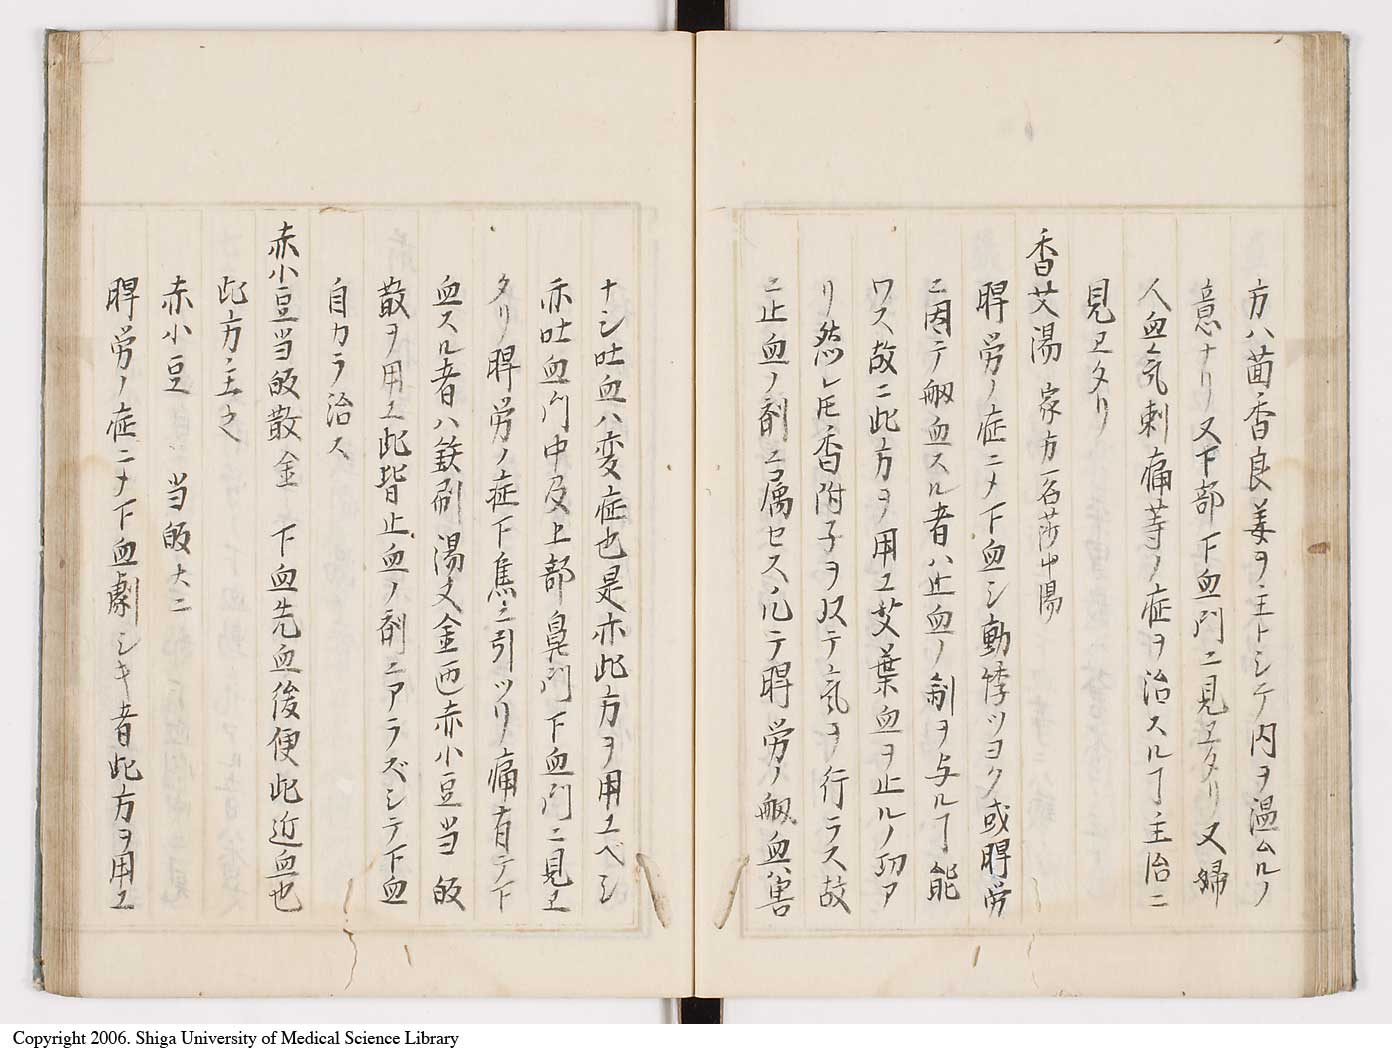 方ハ茴香良姜ヲ主トシテ内ヲ温ムルノ
意ナリ又下部下血門ニ見ヱタリ又婦
人血気刺痛等ノ症ヲ治スルヿ主治ニ
見ヱタリ
香艾湯 家方一名莎中湯
脾労ノ症ニメ下血シ動悸ツヨク或脾労
ニ因テ衂血スル者ハ止血ノ剤ヲ与ルヿ能
ワス故ニ此方ヲ用ユ艾葉血ヲ止ルノ功ア
リ然レ𪜈香附子ヲ以テ気ヲ行ラス故
ニ止血ノ剤ニ属セス凡テ脾労ノ衂血ハ害
ナシ吐血ハ変症也是亦此方ヲ用ユベシ
亦吐血門中及上部鼻門下血門ニ見ヱ
タリ脾労ノ症下焦ニ引ツリ痛有テ下
血スル者ハ鉄刷湯又金匱赤小豆当皈
散ヲ用ユ此皆止血ノ剤ニアラズシテ下血
自カラ治ス
赤小豆当皈散 金 下血先血後便此近血也
此方主之
赤小豆 当皈 大ニ
脾労ノ症ニメ下血劇シキ者此方ヲ用ユ
Copyright 2006. Shiga University of Medical Science Library